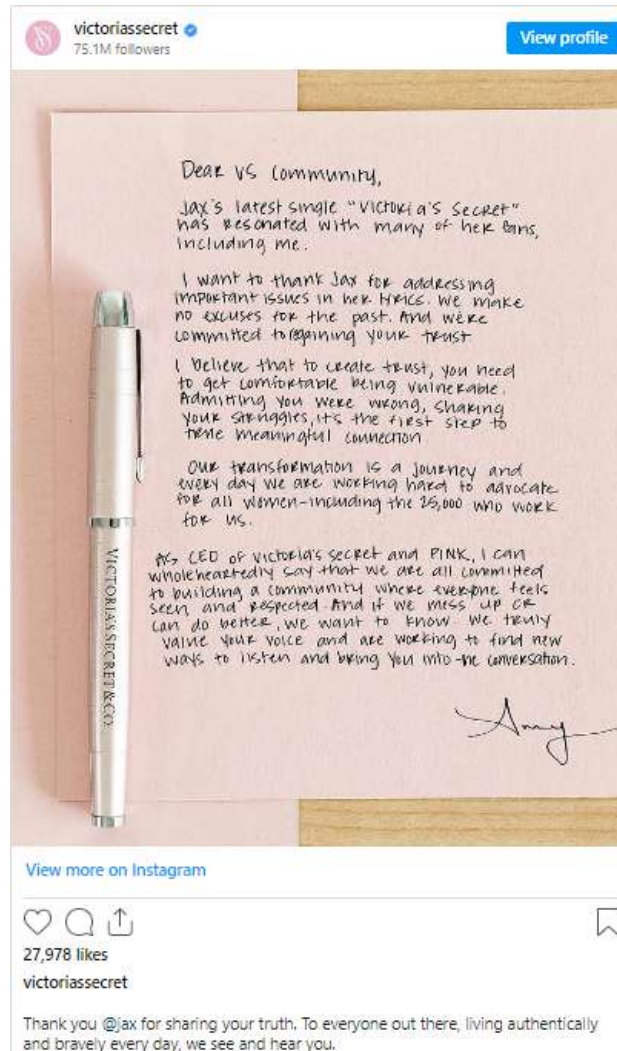 victoriassecret
75.1M followers
View profile
Dear VS Community,
Jax's latest single "Victoria's Secret"
has resonated with many of her fans,
including me.
I want to thank Jax for addressing
important issues in her lyrics. We make
no excuses for the past. And we're
committed to regaining your trust
I believe that to create trust, you need
to get comfortable being vulnerable.
Admitting you were wrong, sharing
your struggles, it's the first step to
true meaningful connection
Our transformation is a journey and
every day we are working hard to advocate
for all women-including the 25,000 who work
for us.
As CEO of Victoria's Secret and PINK, I can
wholeheartedly say that we are all committed
to building a community where everyone feels
seen and respected. And if we mess up or
can do better, we want to know. We truly
value your voice and are working to find new
ways to listen and bring you into the conversation.
Amy
VICTORIA'S SECRET & CO.
View more on Instagram
27,978 likes
victoriassecret
Thank you @jax for sharing your truth. To everyone out there, living authentically
and bravely every day, we see and hear you.